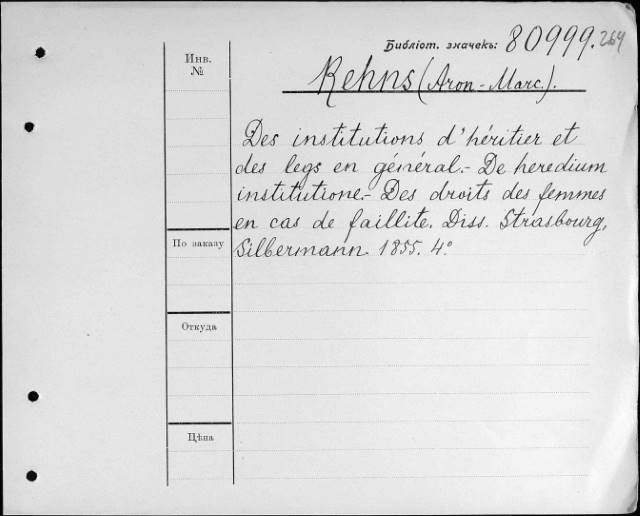 Библіот. значекъ: 80999.264
Инв.
№
Rehns (Aron-Marc.).
Des institutions d'héritier et
des legs en général.- De heredium
institutione.- Des droits des femmes
en cas de faillite. Diss. Strasbourg,
Silbermann 1855. 4º
По заказу
Откуда
Цѣна